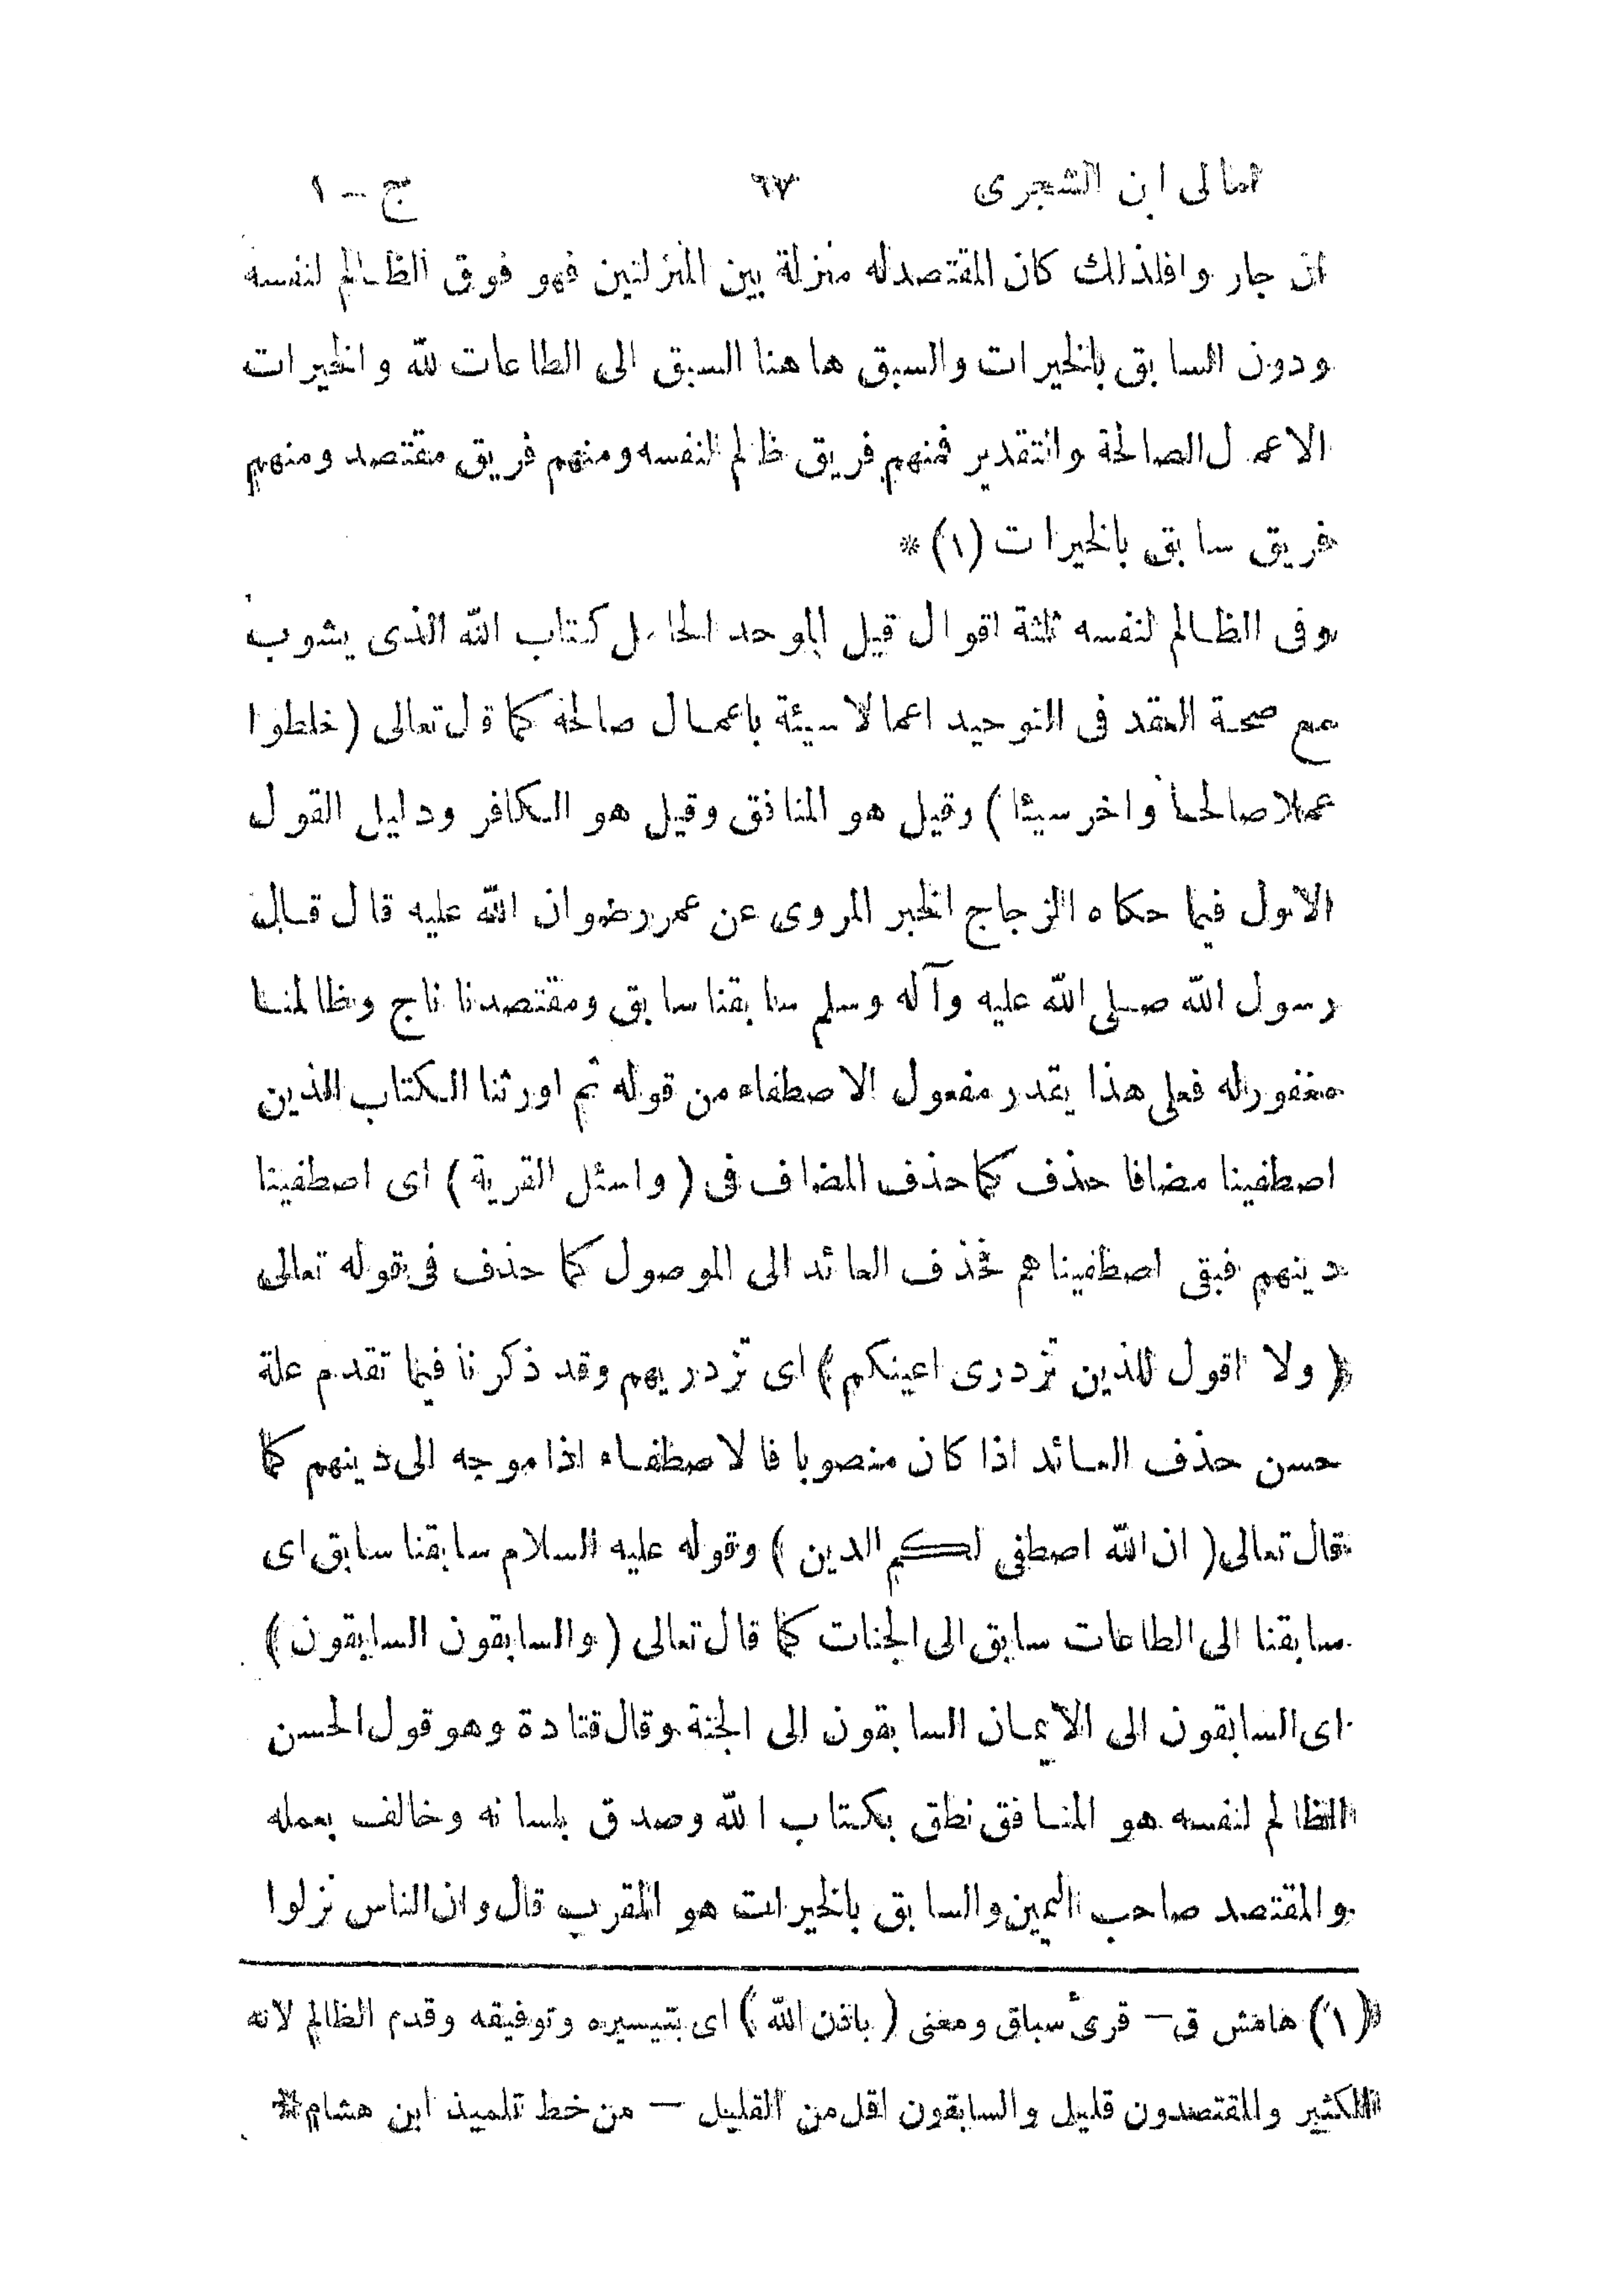 امالى ابن الشجرى ٦٧ ج – ١
ان جار وافلذلك كان المقتصدله منزلة بين المنزلتين فهو فوق الظالم لنفسه
ودون السابق بالخيرات والسبق هاهنا السبق الى الطاعات لله والخيرات
الاعمال الصالحة والتقدير فمنهم فريق ظالم لنفسه ومنهم فريق مقتصد ومنهم
فريق سابق بالخيرات (١)*
وفى الظالم لنفسه ثلثة اقوال قيل الموحد الحامل كتاب الله الذى يشوب
مع صحة العقد فى التوحيد اعمالا سيئة باعمال صالحة كما قال تعالى (خلطوا
عملا صالحا واخر سيئا) وقيل هو المنافق وقيل هو الكافر ودليل القول
الاول فيما حكاه الزجاج الخبر المروى عن عمر رضوان الله عليه قال قال
رسول الله صلى الله عليه وآله وسلم سابقنا سابق ومقتصدنا ناج وظالمنا
مغفورله فعلى هذا يقدر مفعول الاصطفاء من قوله ثم اورثنا الكتاب الذين
اصطفينا مضافا حذف كما حذف المضاف فى (واسئل القرية) اى اصطفينا
دينهم فبقى اصطفيناهم فحذف العائد الى الموصول كما حذف فى قوله تعالى
(ولا اقول للذين تزدرى اعينكم) اى تزدريهم وقد ذكرنا فيما تقدم علة
حسن حذف العائد اذا كان منصوبا فالاصطفاء اذا موجه الى دينهم كما
قال تعالى (ان الله اصطفى لكم الدين) وقوله عليه السلام سابقنا سابق اى
سابقنا الى الطاعات سابق الى الجنات كما قال تعالى (والسابقون السابقون)
اى السابقون الى الايمان السابقون الى الجنة وقال قتادة وهو قول الحسن
الظالم لنفسه هو المنافق نطق بكتاب الله وصدق بلسانه وخالف بعمله
والمقتصد صاحب اليمين والسابق بالخيرات هو المقرب قال وان الناس نزلوا
(١) هامش ق – قرئ سباق ومعنى (باذن الله) اى بتيسيره وتوفيقه وقدم الظالم لانه
الكثير والمقتصدون قليل والسابقون اقل من القليل – من خط تلميذ ابن هشام*